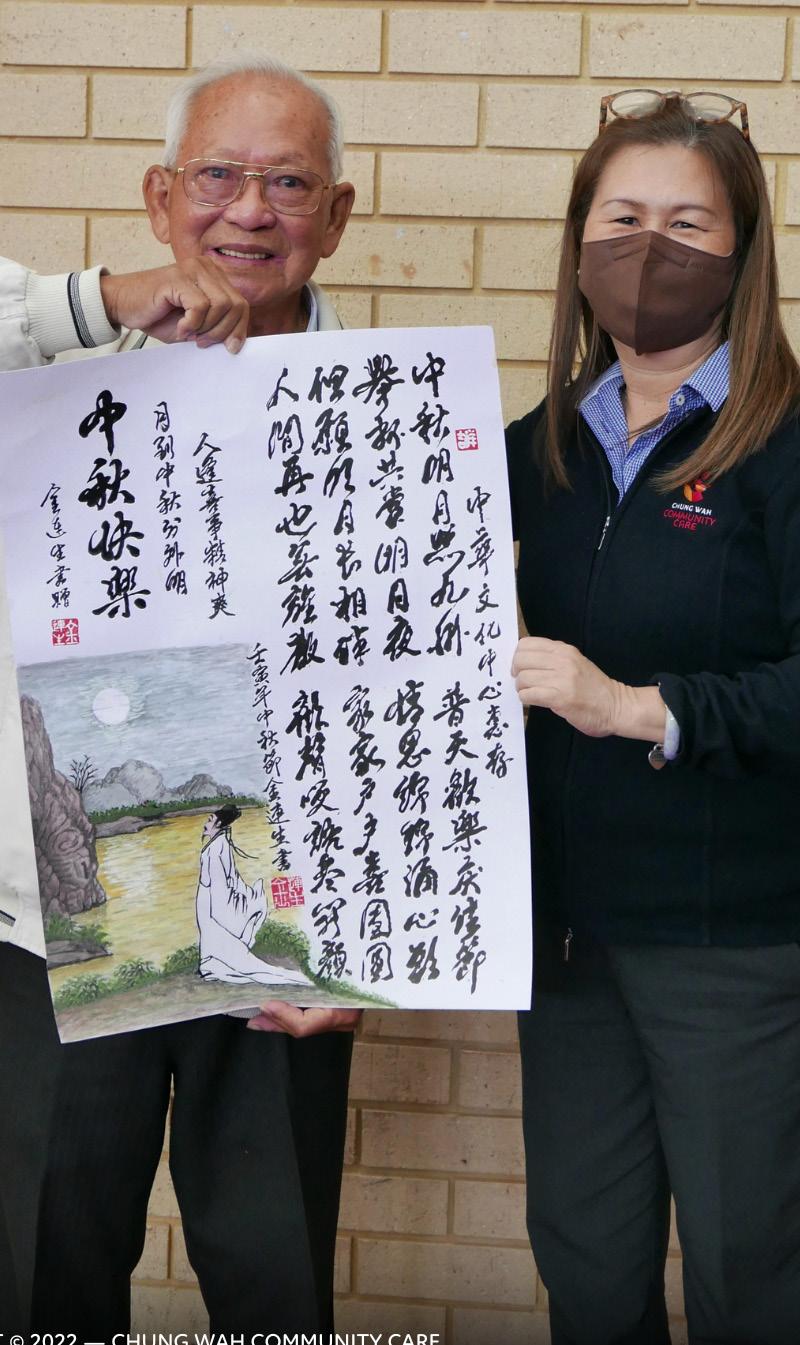 中華文化中心惠存
中秋明月照九州 普天歡樂慶佳節
舉杯共賞明月夜 情思綿綿涌心
但願明月长相 家家戶戶喜團圓
人間再也無離散 歡聲笑語盡開顏
壬寅年中秋節金連生書
人逢喜事精神爽
月到中秋分外明
中秋快樂
金連生書贈
CHUNG WAH
COMMUNITY
CARE
© 2022 — CHUNG WAH COMMUNITY CARE